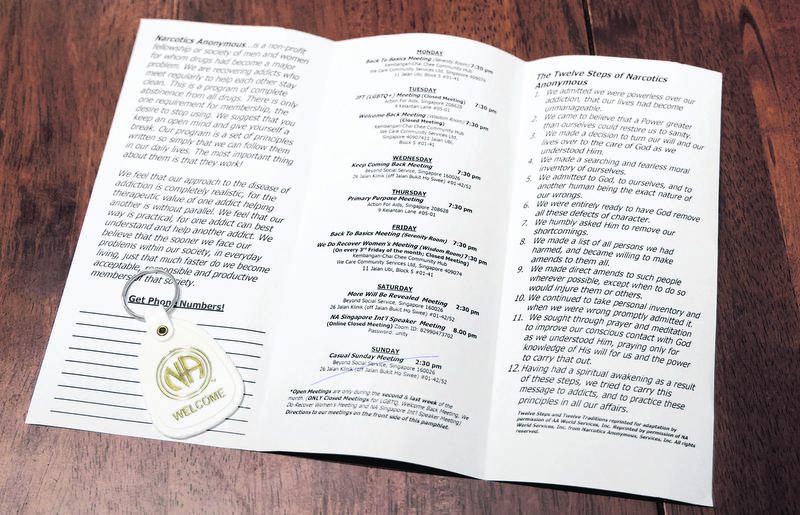 Narcotics Anonymous...is a non-profit
fellowship or society of men and women
for whom drugs had become a major
problem. We are recovering addicts who
meet regularly to help each other stay
clean. This is a program of complete
abstinence from all drugs. There is only
one requirement for membership, the
desire to stop using. We suggest that you
keep an open mind and give yourself a
break. Our program is a set of principles
written so simply that we can follow them
in our daily lives. The most important thing
about them is that they work!
We feel that our approach to the disease of
addiction is completely realistic, for the
therapeutic value of one addict helping
another is without parallel. We feel that our
way is practical, for one addict can best
understand and help another addict. We
believe that the sooner we face our
problems within our society, in everyday
living, just that much faster do we become
acceptable, responsible and productive
members of that society.
Get Phone Numbers!
NA
WELCOME
MONDAY
Back To Basics Meeting (Serenity Room) 7:30 pm
Kembangan-Chai Chee Community Hub
We Care Community Services Ltd, Singapore 409074
11 Jalan Ubi, Block 5 #01-41
TUESDAY
JFT (LGBTQ+) Meeting (Closed Meeting) 7:30 pm
Action For Aids, Singapore 208679
9 Kelantan Lane #05-01
Welcome Back Meeting (Wisdom Room) 7:30 pm
(Closed Meeting)
Kembangan-Chai Chee Community Hub
We Care Community Services Ltd,
Singapore 409074 11 Jalan Ubi,
Block 5 #01-41
WEDNESDAY
Keep Coming Back Meeting 7:30 pm
Beyond Social Service, Singapore 160026
26 Jalan Klinik (off Jalan Bukit Ho Swee) #01-42/52
THURSDAY
Primary Purpose Meeting 7:30 pm
Action For Aids, Singapore 208679
9 Kelantan Lane #05-01
FRIDAY
Back To Basics Meeting (Serenity Room) 7:30 pm
We Do Recover Women's Meeting (Wisdom Room) 7:30 pm
(On every 3rd Friday of the month; Closed Meeting)
Kembangan-Chai Chee Community Hub
We Care Community Services Ltd, Singapore 409074
11 Jalan Ubi, Block 5 #01-41
SATURDAY
More Will Be Revealed Meeting 2:30 pm
Beyond Social Service, Singapore 160026
26 Jalan Klinik (off Jalan Bukit Ho Swee) #01-42/52
NA Singapore Int'l Speaker Meeting 8.00 pm
(Online Closed Meeting) Zoom ID: 82990473702
Password: unity
SUNDAY
Casual Sunday Meeting 2:30 pm
Beyond Social Service, Singapore 160026
26 Jalan Klinik (off Jalan Bukit Ho Swee) #01-42/52
*Open Meetings are only during the second & last week of the
month. (ONLY Closed Meetings for LGBTQ, Welcome Back Meeting, We
Do Recover Women's Meeting and NA Singapore Int'l Speaker Meeting)
Directions to our meetings on the front side of this pamphlet.
The Twelve Steps of Narcotics
Anonymous
1. We admitted we were powerless over our
addiction, that our lives had become
unmanageable.
2. We came to believe that a Power greater
than ourselves could restore us to sanity.
3. We made a decision to turn our will and our
lives over to the care of God as we
understood Him.
4. We made a searching and fearless moral
inventory of ourselves.
5. We admitted to God, to ourselves, and to
another human being the exact nature of
our wrongs.
6. We were entirely ready to have God remove
all these defects of character.
7. We humbly asked Him to remove our
shortcomings.
8. We made a list of all persons we had
harmed, and became willing to make
amends to them all.
9. We made direct amends to such people
wherever possible, except when to do so
would injure them or others.
10. We continued to take personal inventory and
when we were wrong promptly admitted it.
11. We sought through prayer and meditation
to improve our conscious contact with God
as we understood Him, praying only for
knowledge of His will for us and the power
to carry that out.
12. Having had a spiritual awakening as a result
of these steps, we tried to carry this
message to addicts, and to practice these
principles in all our affairs.
Twelve Steps and Twelve Traditions reprinted for adaptation by
permission of AA World Services, Inc. Reprinted by permission of NA
World Services, Inc. from Narcotics Anonymous, Services, Inc. All rights
reserved.